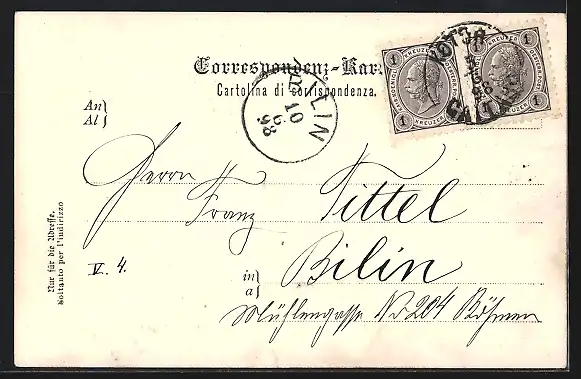 Correspondenz-Kar
Cartolina di corrispondenza.
1 KREUZER 1
1 KREUZER 1
KREUZER
BILIN
10
6
98
An
Al
Herrn
Franz Tittel
V. 4.
in
a
Bilin
Mühlengasse No 204 Böhmen
Nur für die Adresse.
Soltanto per l'indirizzo